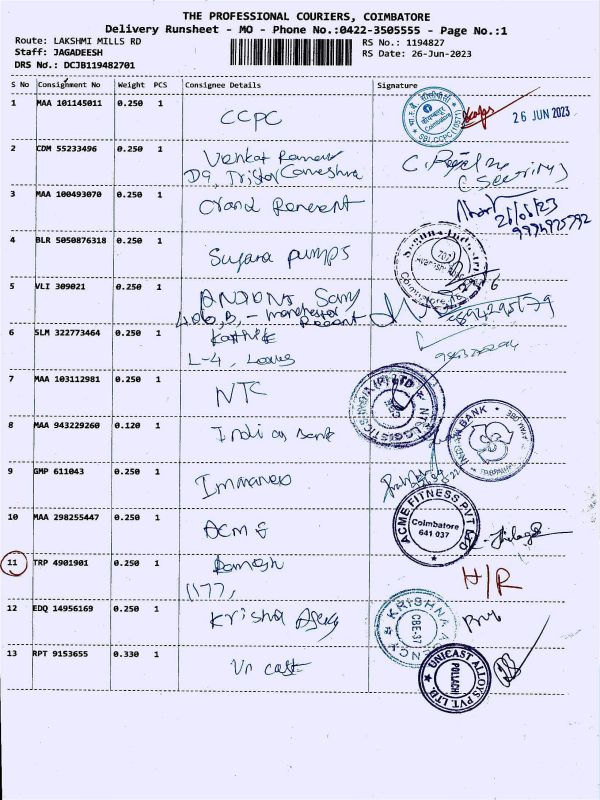 THE PROFESSIONAL COURIERS, COIMBATORE
Delivery Runsheet - MO - Phone No.:0422-3505555 - Page No.:1
Route: LAKSHMI MILLS RD
RS No.: 1194827
Staff: JAGADEESH
RS Date: 26-Jun-2023
DRS No.: DCJB119482701
S No Consignment No Weight PCS Consignee Details Signature
1 MAA 101145011 0.250 1 CCPC 26 JUN 2023
2 CDM 55233496 0.250 1 Venkat
D9, Tristar
3 MAA 100493070 0.250 1 Grand
4 BLR 5050876318 0.250 1 Sugara pumps
5 VLI 309021 0.250 1
Manchester
6 SLM 322773464 0.250 1 Karthik
L-4,
7 MAA 103112981 0.250 1 NTC
8 MAA 943229260 0.120 1 Indian Bank INDIAN BANK
9 GMP 611043 0.250 1
10 MAA 298255447 0.250 1 ACME ACME FITNESS PVT LTD
Coimbatore
641 037
11 TRP 4901901 0.250 1 Ramesh H/R
1177,
12 EDQ 14956169 0.250 1 Krisha KRISHNA AGENCY
CBE-37
13 RPT 9153655 0.330 1 Uni cast UNICAST ALLOYS PVT. LTD.
POLLACHI